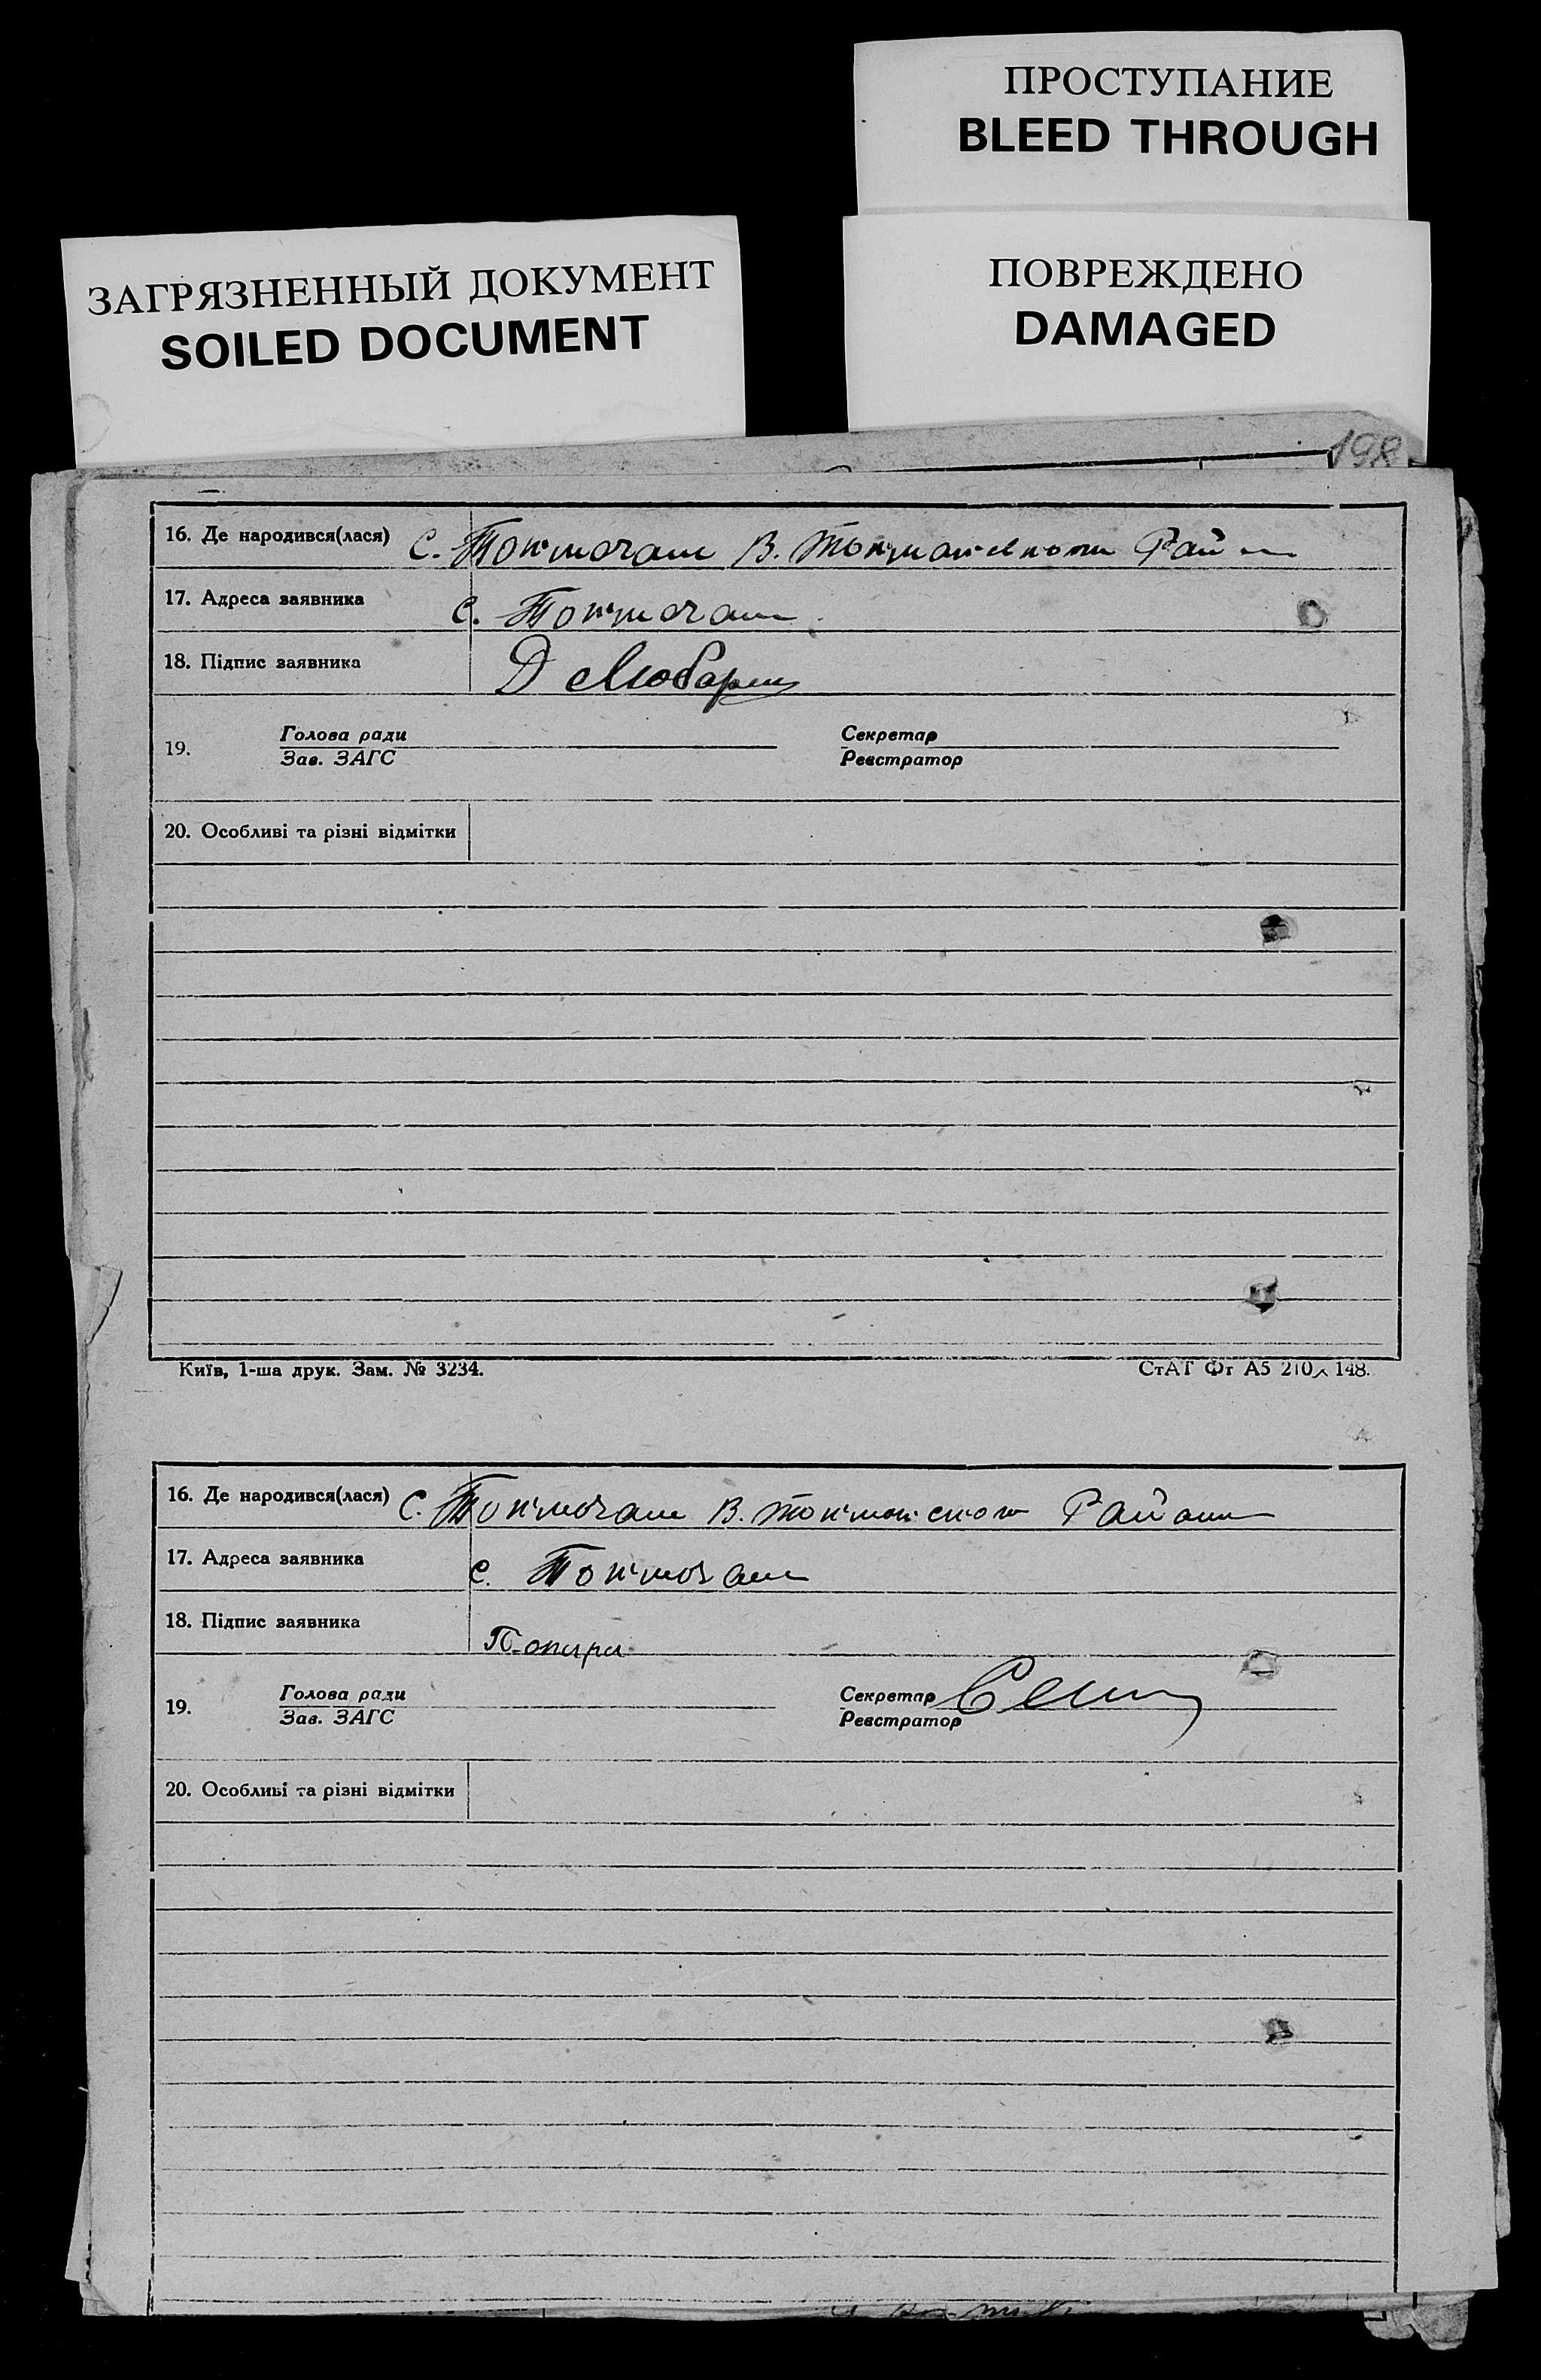 ПРОСТУПАНИЕ
BLEED THROUGH
ЗАГРЯЗНЕННЫЙ ДОКУМЕНТ
SOILED DOCUMENT
ПОВРЕЖДЕНО
DAMAGED
198
16. Де народився(лася) С. Токмочани В. Токмакского Рай
17. Адреса заявника С. Токмочани
18. Підпис заявника Д Любар
19. Голова ради Секретар
Зав. ЗАГС Реєстратор
20. Особливі та різні відмітки
Київ, 1-ша друк. Зам. № 3234. СтАТ Фт А5 210 × 148.
16. Де народився(лася) С. Токмочани В. Токмакского Район
17. Адреса заявника С. Токмочани
18. Підпис заявника
19. Голова ради Секретар
Зав. ЗАГС Реєстратор
20. Особливі та різні відмітки